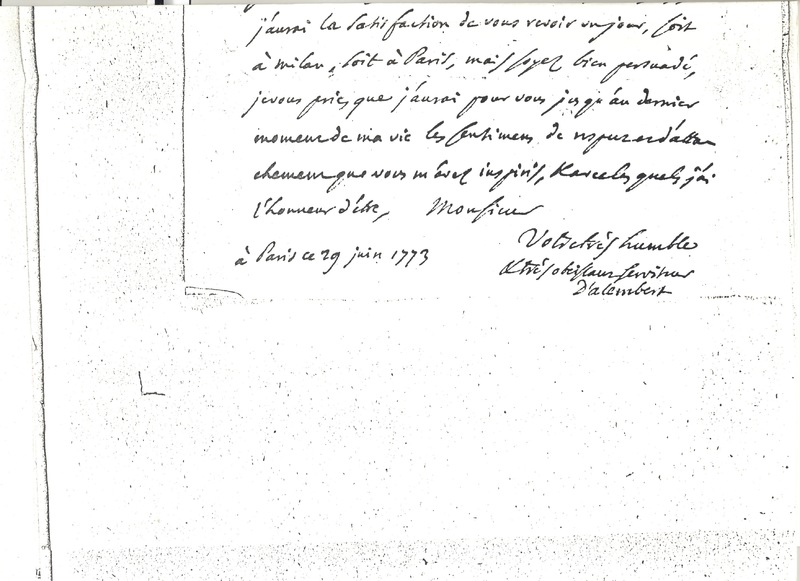 j'aurai la satisfaction de vous revoir un jour, soit
à milan, soit à Paris, mais soyez bien persuadé,
je vous prie, que j'aurai pour vous jusqu'au dernier
moment de ma vie les sentimens de respect et d'atta
chement que vous m'avez inspirés, & avec lesquels j'ai
l'honneur d'être, Monsieur
Votre très humble
à Paris ce 29 juin 1773
& très obeissant serviteur
D'alembert